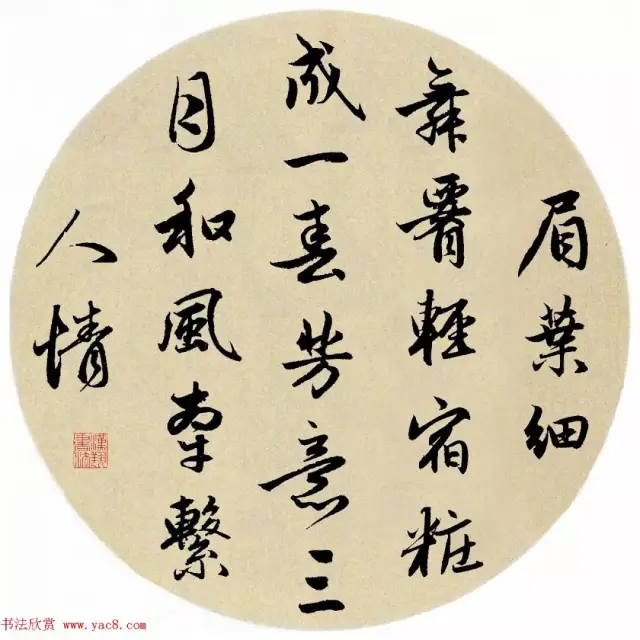 眉葉細
舞腰輕宿粧
成一春芳意三
月和風牽繫
人情
漢翔書法
书法欣赏 www.yac8.com